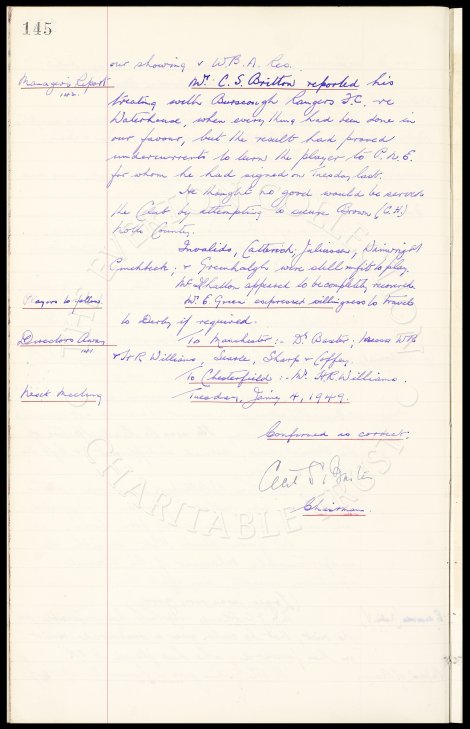 145
our showing v W.B.A. Res.
Manager's Report
Mr. C. S. Britton reported his
treating with Burscough Rangers F.C. re
Waterhouse, when everything had been done in
our favour, but the result had proved
undercurrents to turn the player to P.N.E.
for whom he had signed on Tuesday last.
He thought no good would be served
the Club by attempting to secure Brown (C.H.)
Notts County.
Invalids, Catterick, Juliussen, Wainwright
; & Greenhalgh were still unfit to play.
appeared to be completely recovered.
Players to follow.
Mr. E. Green expressed willingness to travel
to Derby if required.
Directors Away
To Manchester:- Dr. Baxter; Messrs W.R.
& H.R. Williams, Searle, Sharp & Coffey.
To Chesterfield:- Mr. H.R. Williams.
Next Meeting
Tuesday, Jan'y 4, 1949.
Confirmed as correct.
Chairman.
CHARITABLE TRUST